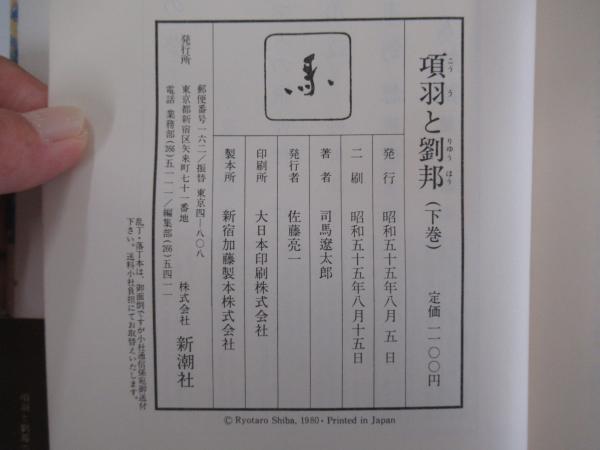 項羽と劉邦(下巻)
こう う りゅう ほう
定価 一一〇〇円
発行 昭和五十五年八月 五 日
二刷 昭和五十五年八月十五日
著者 司馬遼太郎
発行者 佐藤亮一
印刷所 大日本印刷株式会社
製本所 新宿加藤製本株式会社
発行所
株式会社 新潮社
郵便番号一六二/振替 東京四―八〇八
東京都新宿区矢来町七十一番地
電話 業務部(266)五一一一/編集部(266)五四一一
乱丁・落丁本は、御面倒ですが小社通信係宛御送付
下さい。送料小社負担にてお取替えいたします。
© Ryotaro Shiba, 1980・Printed in Japan